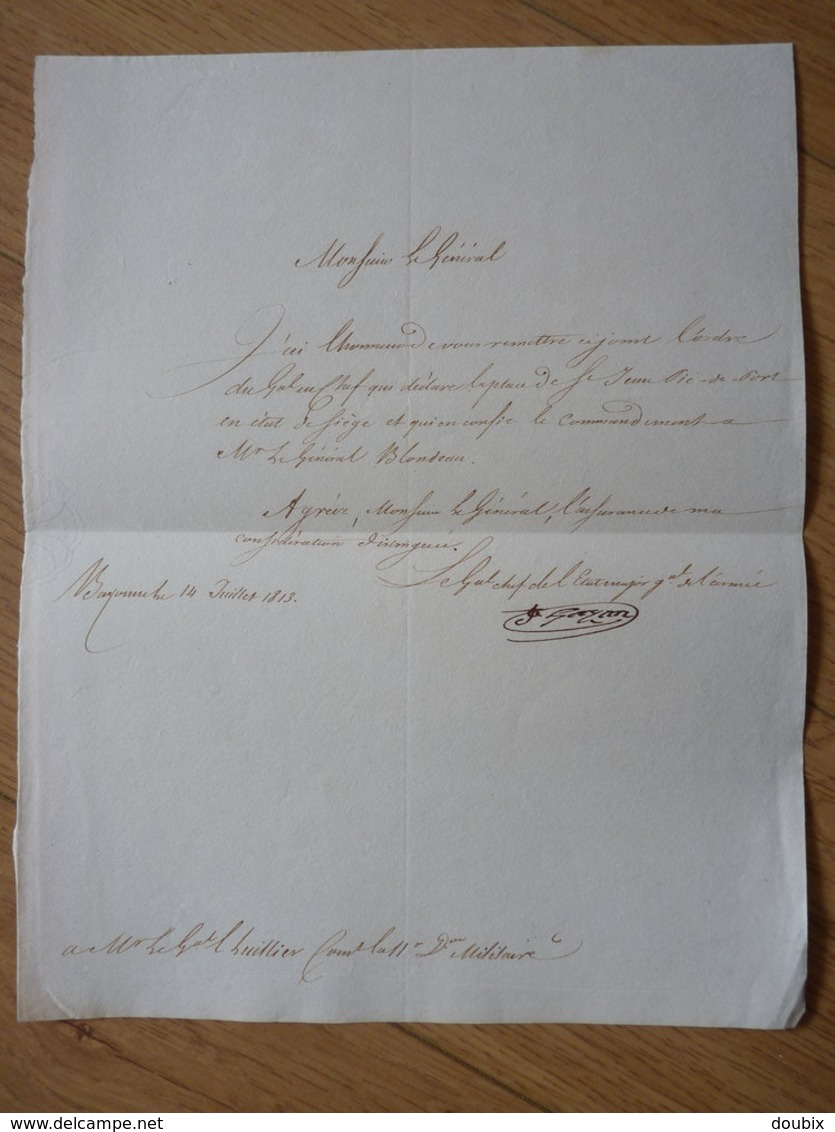 Monsieur Le Général
J'ai l'honneur de vous remettre ci joint l'ordre
du Gal en Chef qui déclare la place de St Jean Pié-de-Port
en état de siège et qui en confie le commandement a
Mr Le Général Blondeau.
Agréez, Monsieur Le Général, l'assurance de ma
considération distinguée.
Le Gal chef de l'Etat major gal de l'armée
Bayonne le 14 Juillet 1813.
a Mr Le Gal Lhuillier Comdt la 11e Don Militaire
©delcampe.net
doubix